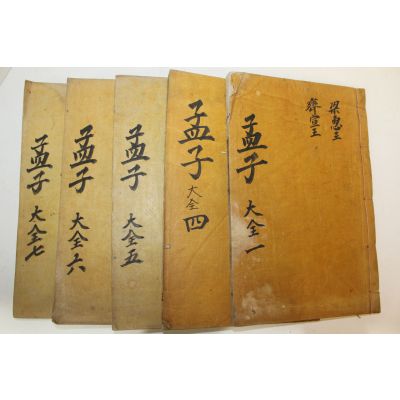 梁惠王
齊宣王
孟子 大全 一
孟子 大全 四
孟子 大全 五
孟子 大全 六
孟子 大全 七